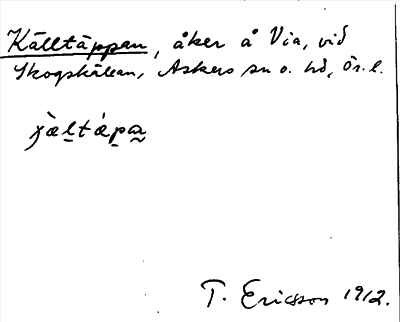 Källtäppan, åker å Via, vid
Skogskällan, Askers sn o. hd, Ör. l.
T. Ericsson 1912.